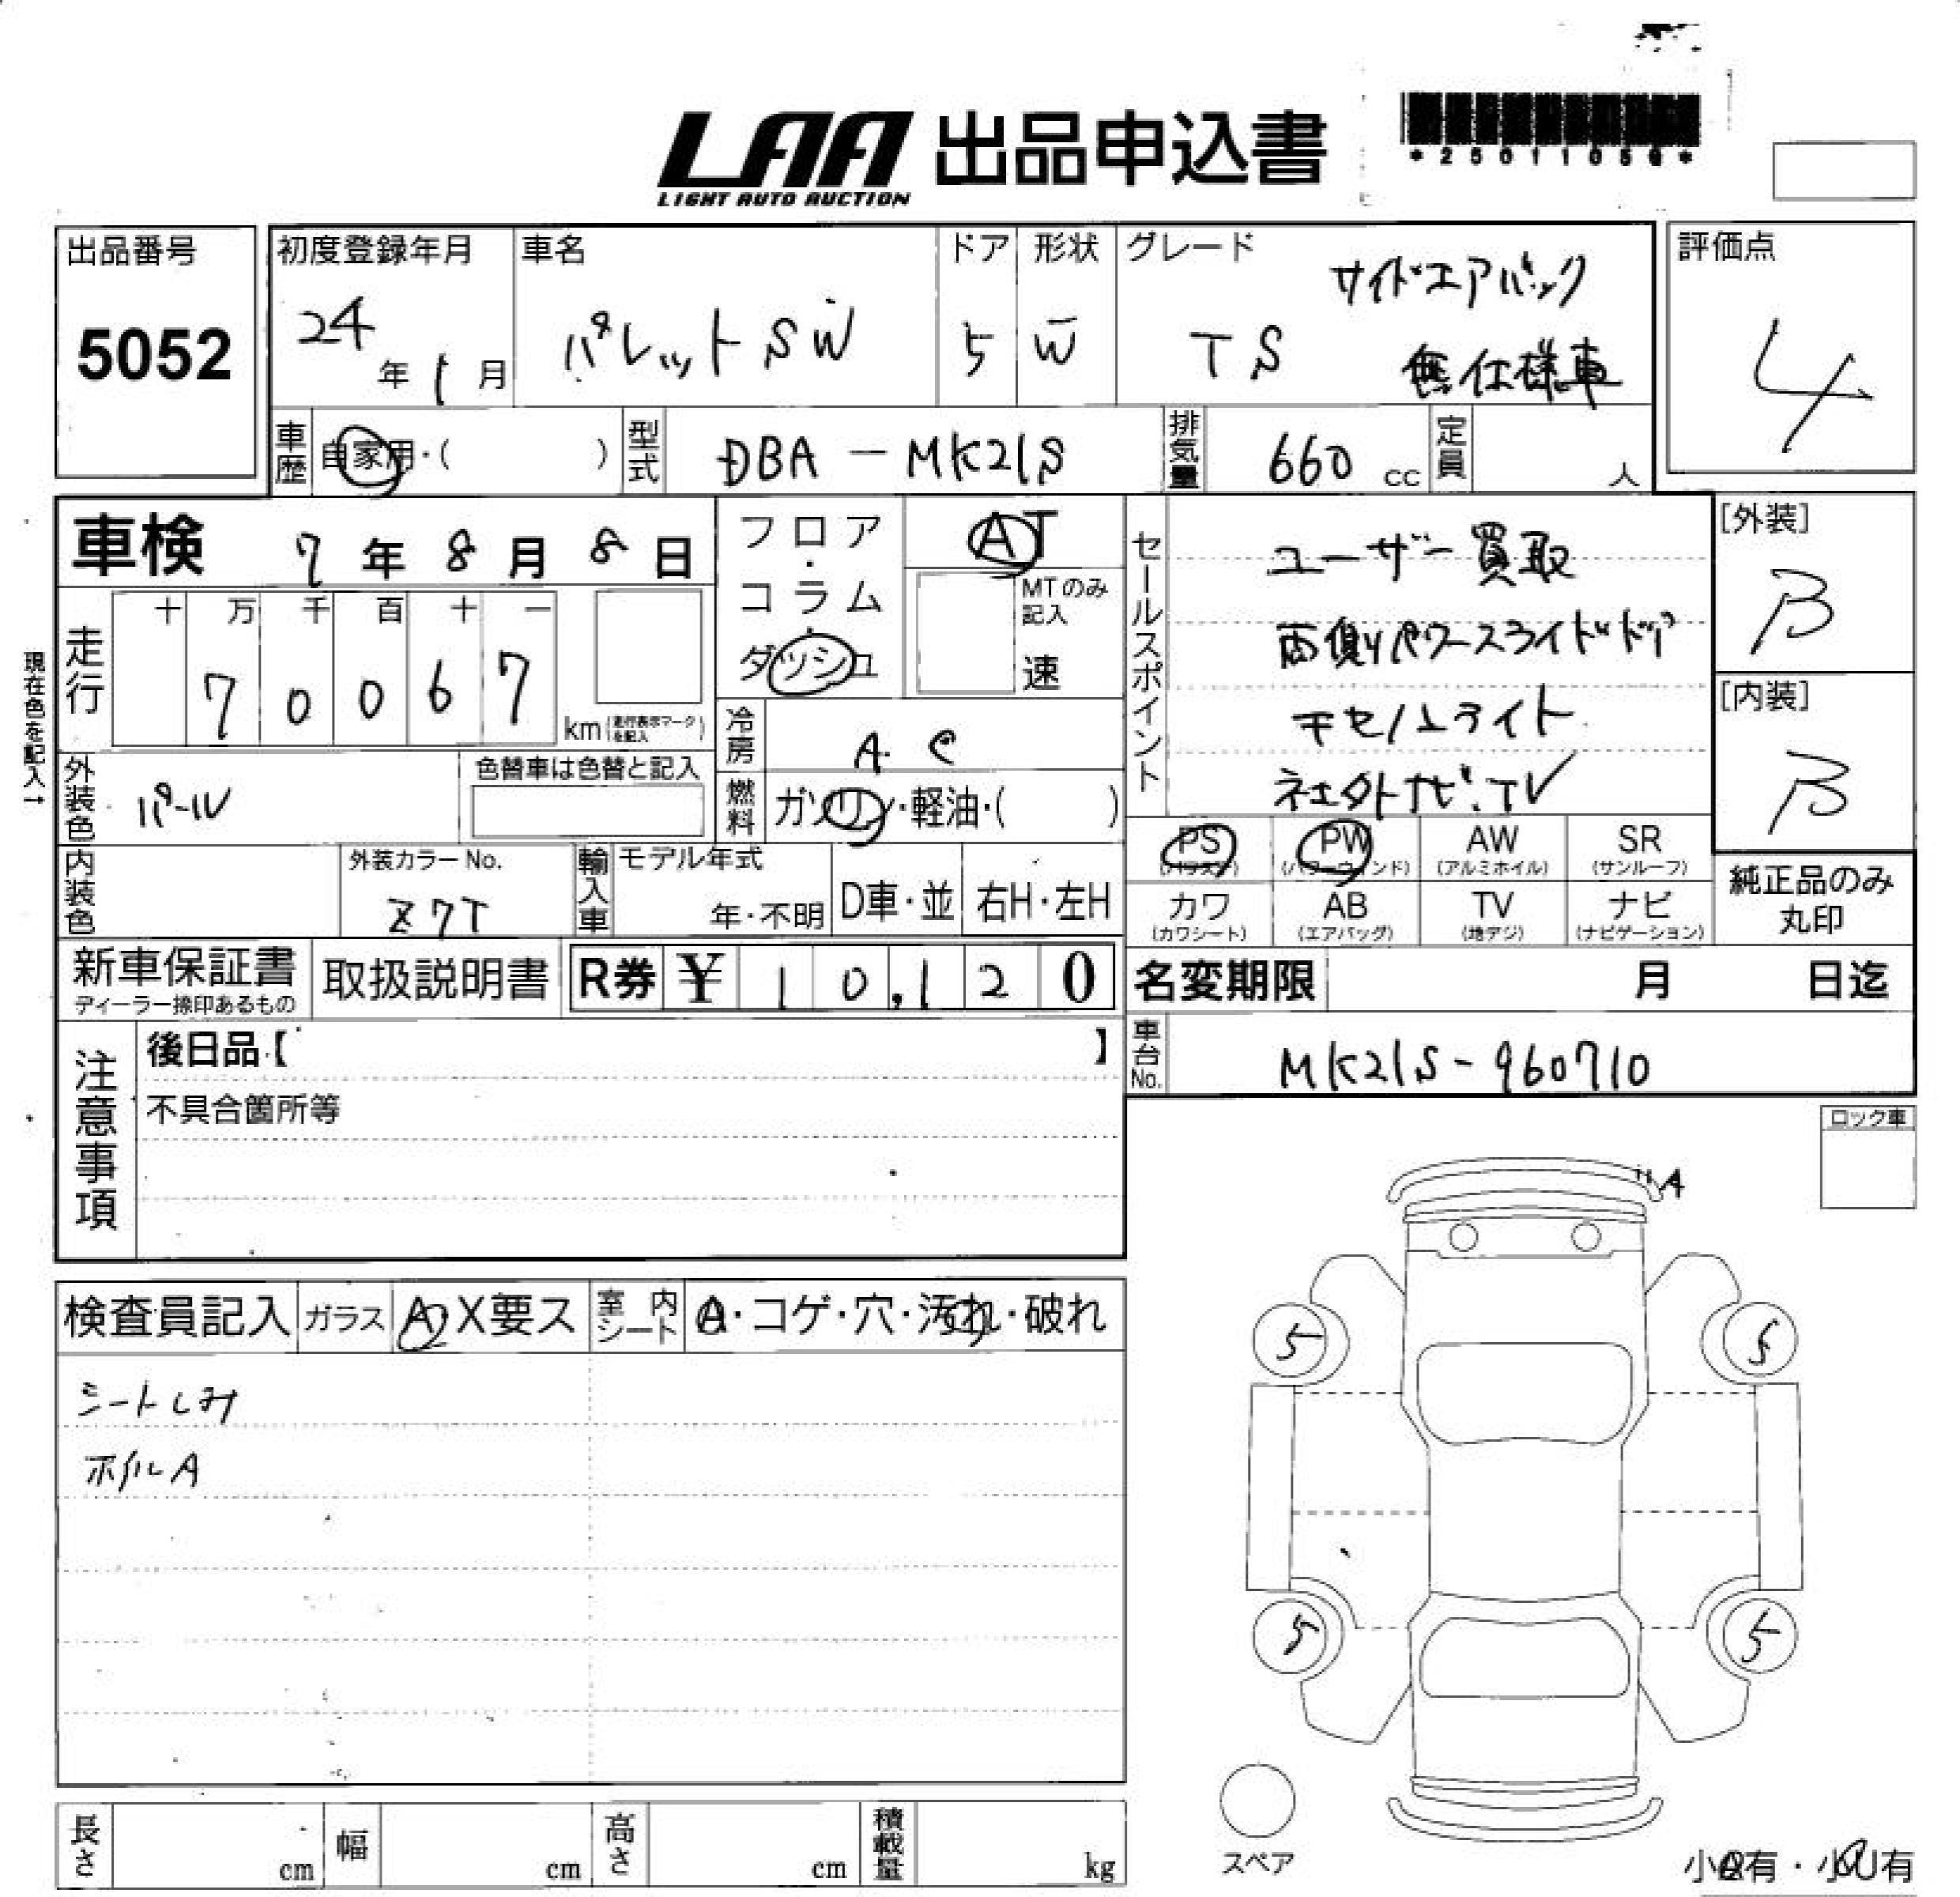 LAA 出品申込書
LIGHT AUTO AUCTION
*25011050*
出品番号
5052
初度登録年月
24年1月
車名
パレットSW
ドア
5
形状
W
グレード
TS
サイドエアバック
無仕様車
評価点
4
車歴
自家用・( )
型式
DBA-MK21S
排気量
660 cc
定員
人
車検 7年8月8日
走行
十 万 千 百 十 一
7 0 0 6 7
km(走行表示マークを記入)
現在色を記入→
フロア・コラム・ダッシュ
AT
MTのみ記入
速
冷房
A.C
燃料
ガソリン・軽油・( )
セールスポイント
ユーザー買取
両側パワースライドドア
キセノンライト
社外ナビ.TV
[外装]
B
[内装]
B
外装色
パール
色替車は色替と記入
内装色
外装カラーNo.
Z7T
輸入車
モデル年式
年・不明
D車・並
右H・左H
PS
(パワステ)
PW
(パワーウィンド)
AW
(アルミホイル)
SR
(サンルーフ)
カワ
(カワシート)
AB
(エアバッグ)
TV
(地デジ)
ナビ
(ナビゲーション)
純正品のみ
丸印
新車保証書
ディーラー捺印あるもの
取扱説明書
R券 ¥10,120
名変期限 月 日迄
車台No.
MK21S-960710
注意事項
後日品【 】
不具合箇所等
ロック車
A
検査員記入
ガラス
A・X要ス
室内シート
A・コゲ・穴・汚れ・破れ
シートしみ
ホイルA
5
5
5
5
スペア
小A有・小U有
長さ
cm
幅
cm
高さ
cm
積載量
kg